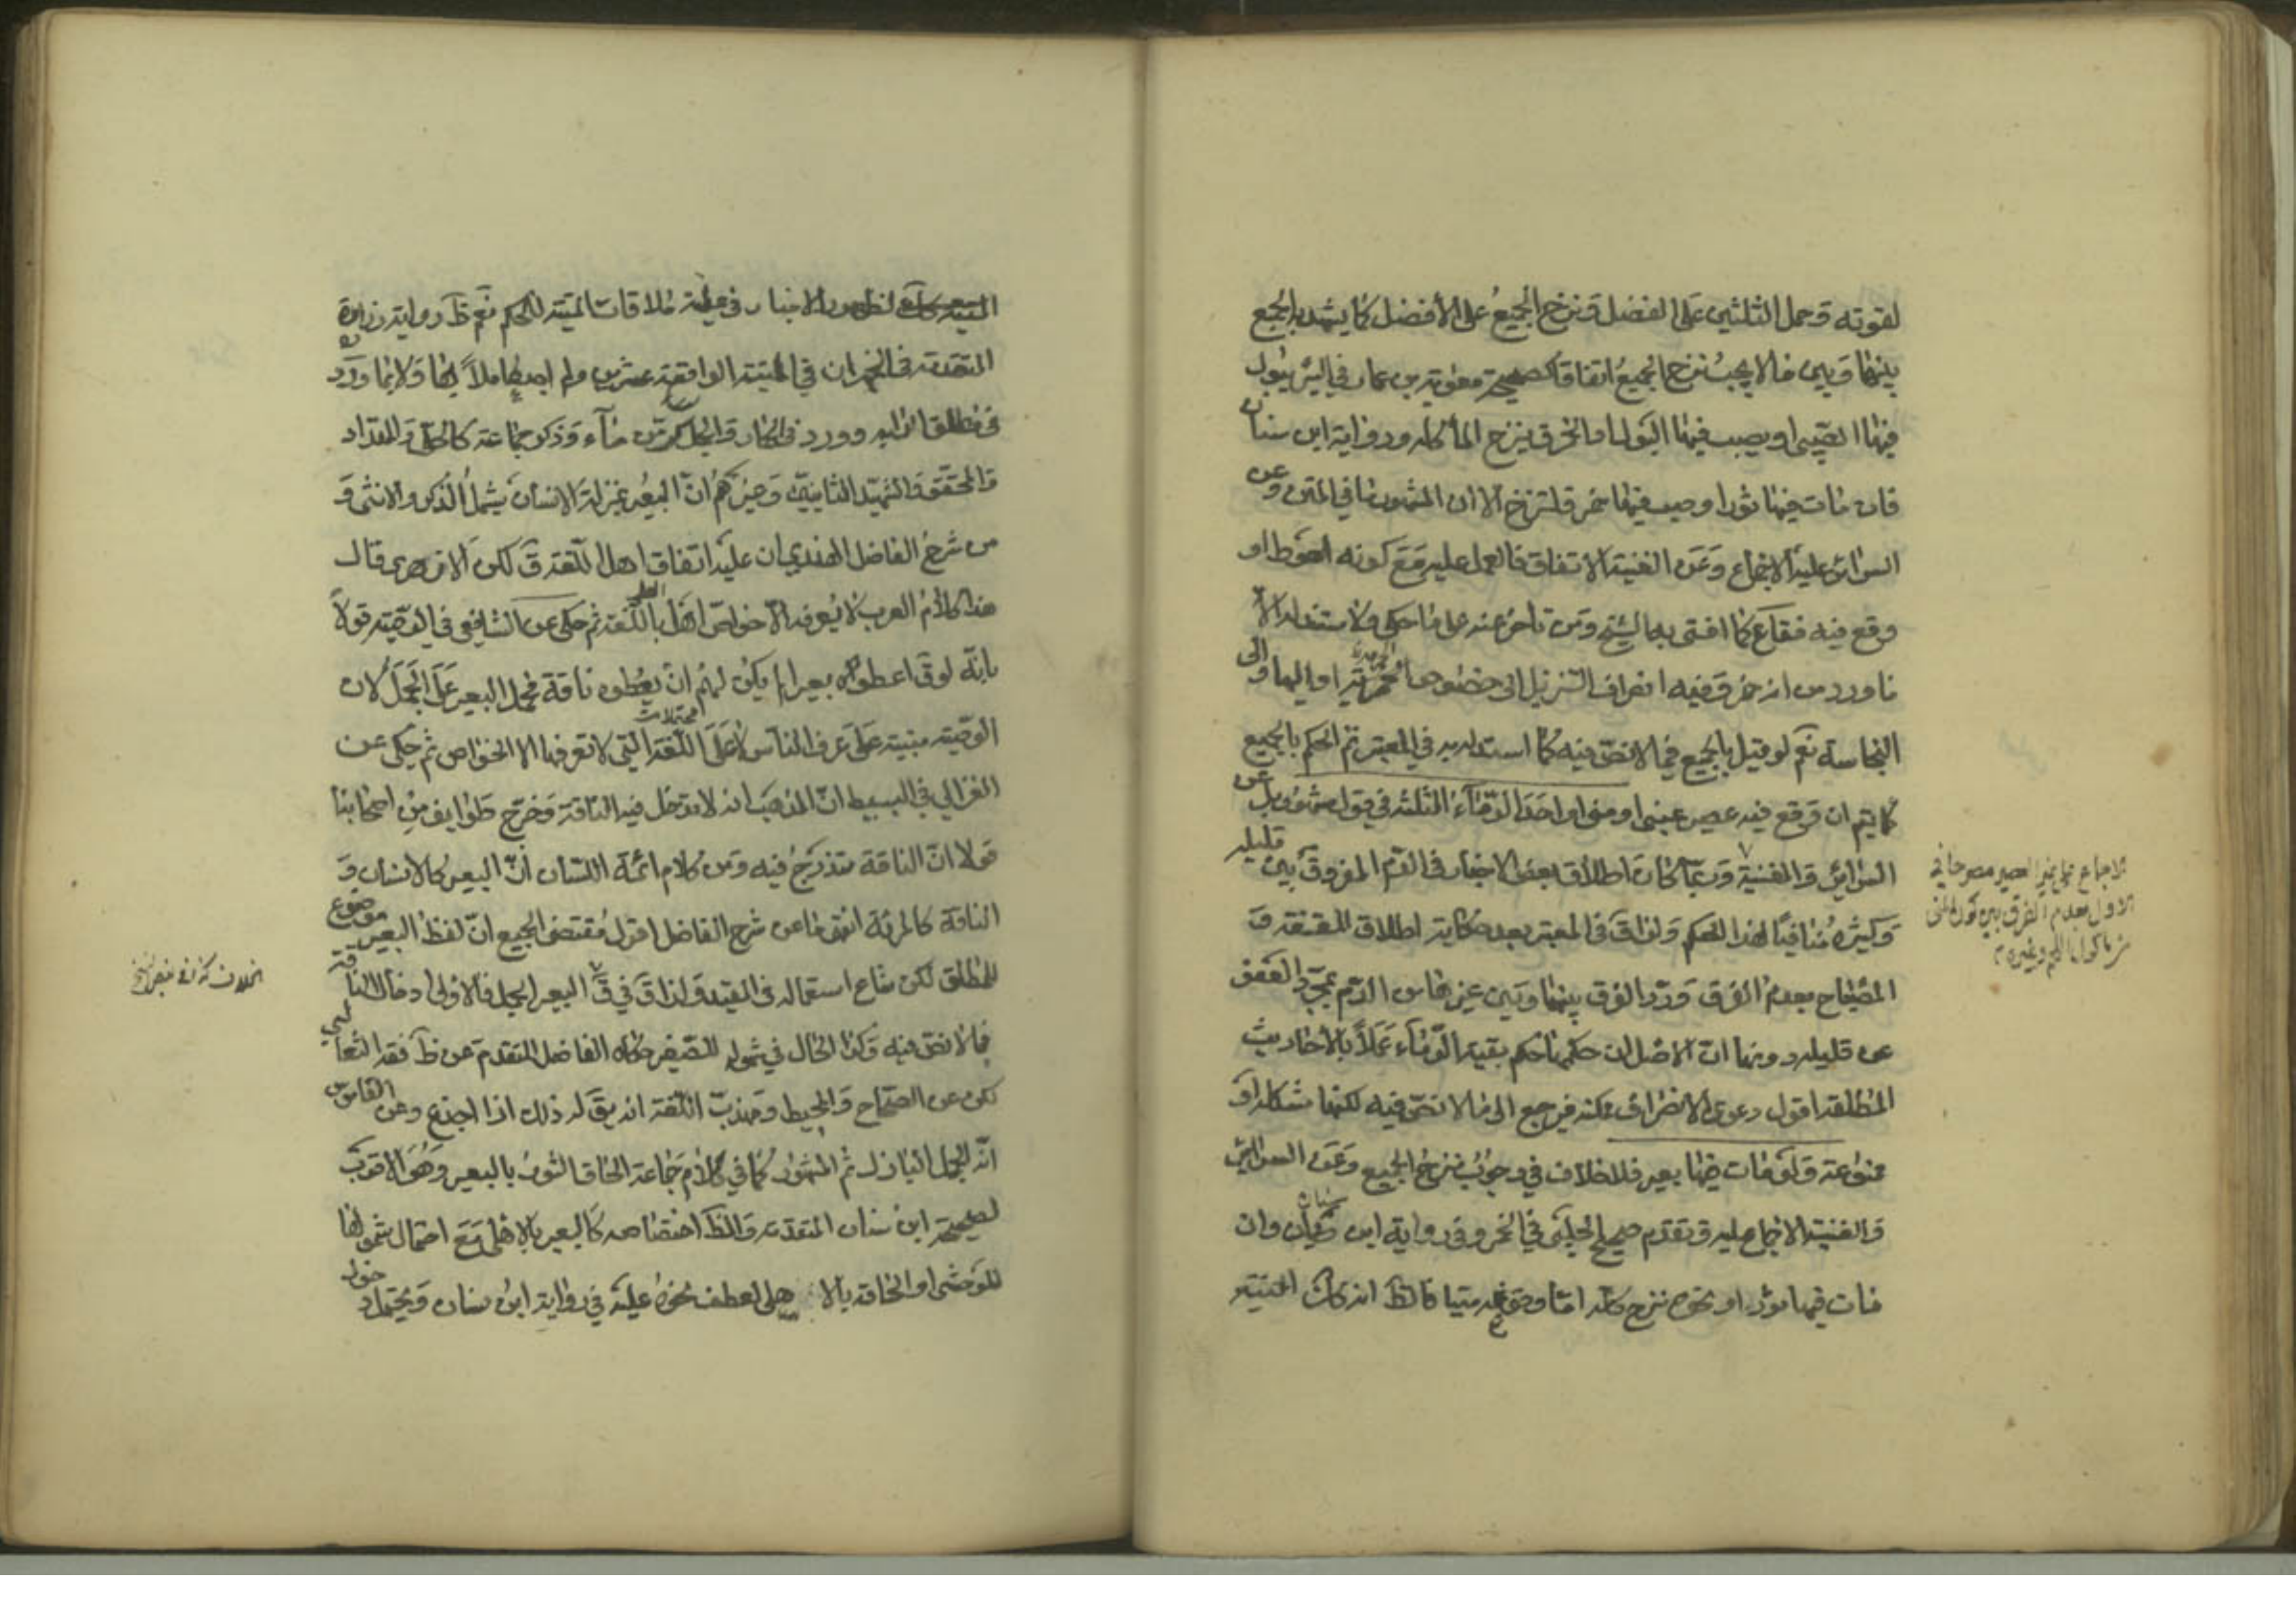 لقوته وحمل الثلثين على الفضل ونزح الجميع على الأفضل كما يشهد به الجمع
بينهما وبين ما لا يجب نزح الجميع اتفاقا كصحيحة معوية بن عمار في البئر يبول
فيها الصبي او يصب فيها البول او الخمر ق ينزح الماء كله ورواية ابن سنان
فان مات فيها ثور او صب فيها خمر فلتنزح الا ان المشهور ما في المتن وعن
السرائر عليه الاجماع وعن الغنية الاتفاق فالعمل عليه مع كونه احوط او
وقع فيه فقاع كما افتى به الشيخ ومن تاخر عنه على ما حكى ولا مستند له الا
ما ورد من انه خمر وفيه انصراف التنزيل الى خصوص الحرمة او اليها والى
النجاسة نعم لو قيل بالجميع فيما لا نص فيه كما استدل به في المعتبر تم الحكم بالجميع
كما يتم ان وقع فيه عصير عنبى او منى او احد الدماء الثلثة في قول مشهور بل عن
السرائر والغنية وربما كان اطلاق بعض الاخبار في الدم المفروق بين قليله
وكثيره منافيا لهذا الحكم ولذا ق في المعتبر بعد حكاية اطلاق المقنعة و
المصباح بعدم الفرق ورد الفرق بينها وبين غيرها من الدم بمجرد العفو
عن قليله دونها ان الاصل ان حكمها حكم بقية الدماء عملا بالأحاديث
المطلقة اقول دعوى الانصراف ممكنة فيرجع الى ما لا نص فيه لكنها مشكلة او
ممنوعة ولو مات فيها بعير فلا خلاف في وجوب نزح الجميع وعن السرائر
والغنية الاجماع عليه وتقدم صحيح الحلبى في الخمر وفي رواية ابن سنان وان
مات فيها ثور او نحوه نزح كله اما وقوعه ميتا فالظ انه كان الميتة
الاجماع على غير العصير مصرحا في
الاول بعدم الفرق بين كون المنى
من ماكول اللحم وغيره
لظهور الاخبار في علية ملاقات الميتة للحكم نعم ظ رواية زرارة
المتقدمة في الخمر ان في الميتة الواقعة عشرين ولم اجد عاملا بها ولانها ورد
في مطلق الدابه وورد في الحمار والجمل كر من ماء وذكر جماعة كالحلى والمقداد
والمحقق والشهيد الثانيين وغيرهم ان البعير بمنزلة الانسان يشمل الذكر والانثى و
من شرح الفاضل الهندي ان عليه اتفاق اهل اللغة ق لكن الازهرى قال
هذا كلام العرب لا يعرفه الا خواص اهل العلم باللغة ثم حكى عن الشافعي في الوصية قولا
بانه لو ق اعطوه بعيرا لم يكن لهم ان يعطوه ناقة فحمل البعير على الجمل لان
الوصية مبنية على عرف الناس لا على محتملات اللغة التي لا تعرفها الا الخواص ثم حكى عن
الغزالي في البسيط ان المذهب انه لا يدخل فيه الناقة وخرج طوايف من اصحابنا
قولا ان الناقة تندرج فيه ومن كلام ائمة اللسان ان البعير كالانسان و
الناقة كالمرئة انتهى ما عن شرح الفاضل اقول مقتضى الجميع ان لفظ البعير موضوع
للمطلق لكن شاع استعماله في المقيد ولذا ق في ق البعير الجمل فالاولى ادخال الناقة
فيما لا نص فيه وكذا الحال في شموله للصغير حكاه الفاضل المتقدم عن ظ فقه الثعالبى
لكن عن الصحاح والمحيط وتهذيب اللغة انه يق له ذلك اذا اجذع وعن القاموس
انه الجمل البازل ثم المشهور كما في كلام جماعة الحاق الثور بالبعير وهو الاقوى
لصحيحة ابن سنان المتقدمة والظ اختصاصه كالبعير بالاهلى مع احتمال شمولها
للوحشى او الحاقه بالاهلى لعطف نحوه عليه في رواية ابن سنان ويحتمل دخول